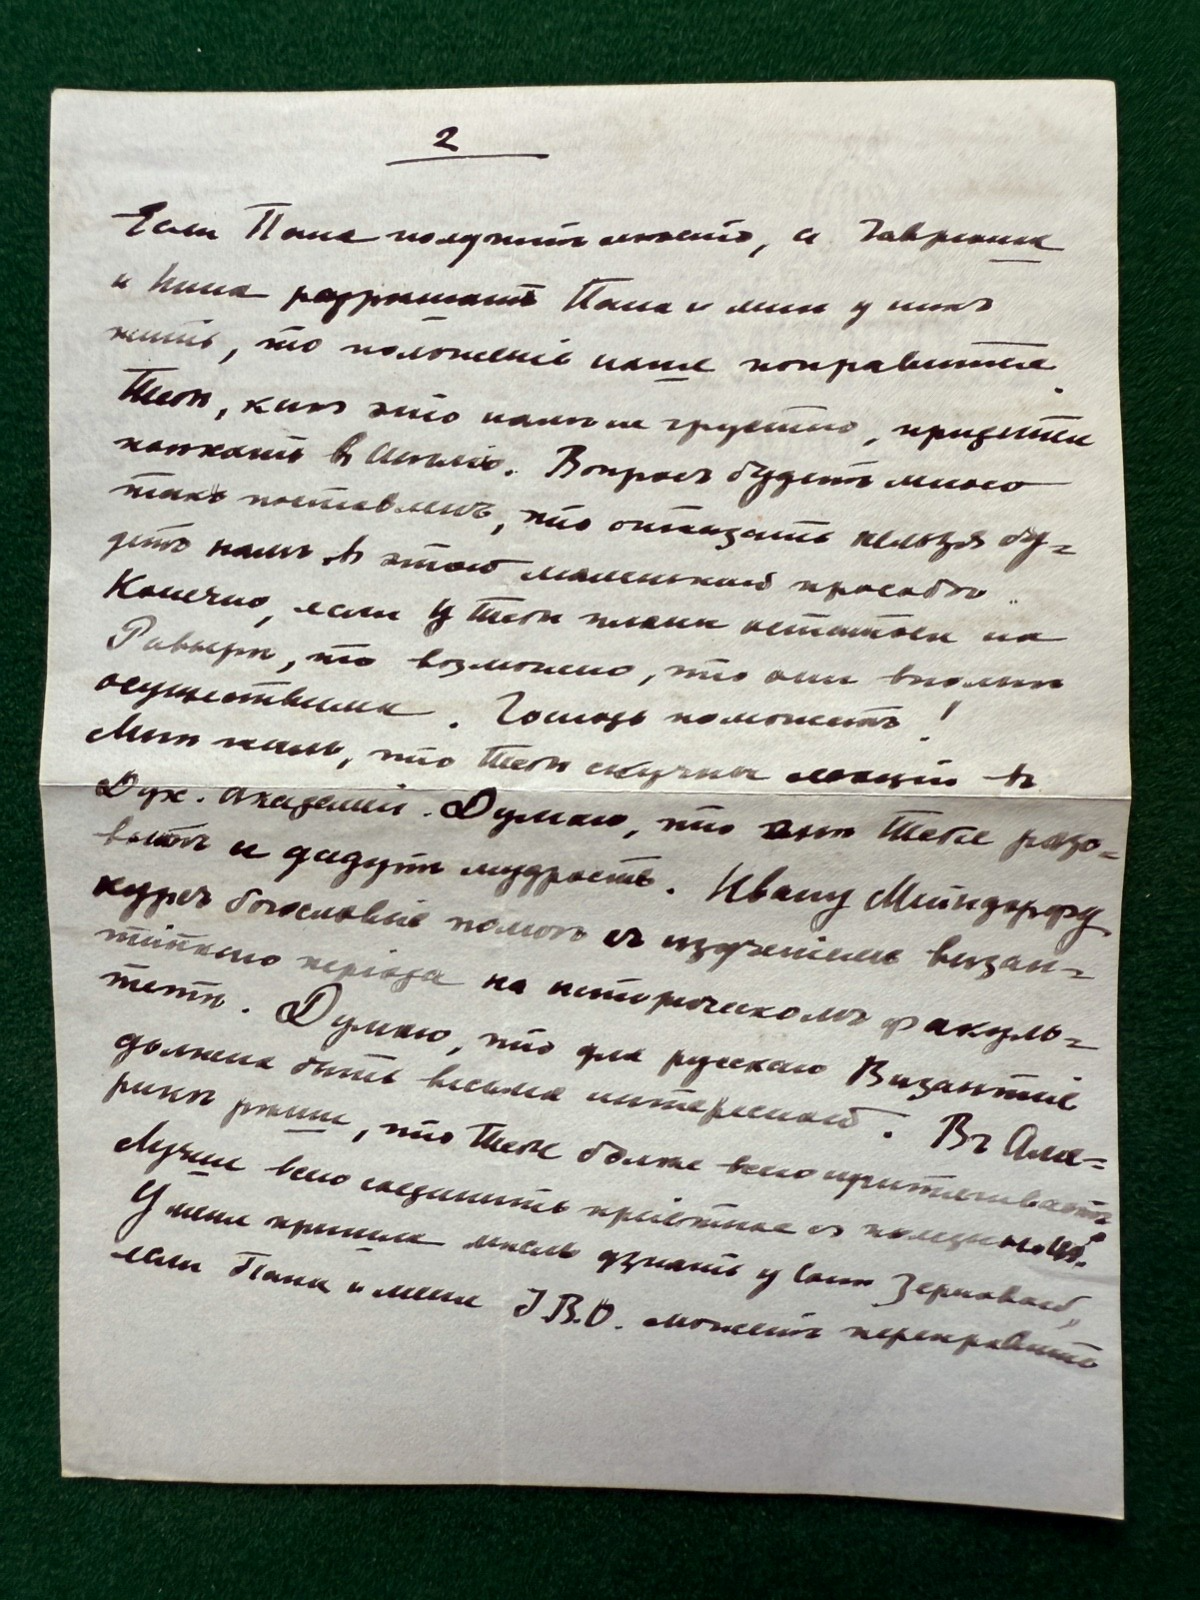 2
Если Папа получитъ мѣсто, а Гаврюша
и Нина разрѣшатъ Папѣ и мнѣ у нихъ
жить, то положенiе наше поправится.
Тебѣ, какъ это намъ не грустно, придется
поѣхать въ Англiю. Вопросъ будетъ мною
такъ поставленъ, что отказать нельзя бу-
детъ намъ въ этой маленькой просьбѣ.
Конечно, если у Тебя планы остаться на
Ривьерѣ, то возможно, что они вполнѣ
осуществимы. Господь поможетъ!
Мнѣ жаль, что Тебѣ скучны лекцiи въ
Дух. Академiи. Думаю, что они Тебя разо-
вьютъ и дадутъ мудрость. Ивану Мейндорфу
курсъ богословiя помогъ съ изученiемъ визан-
тiйскаго перiода на историческомъ факуль-
тетѣ. Думаю, что для русскаго Византiя
должна быть весьма интересной. Въ Аме-
рикѣ рѣши, что Тебя болѣе всего притягиваетъ
Лучше всего соединить прiятное съ полезнымъ.
У меня пришла мысль узнать у Сони Зерновой,
если Папа и меня I.R.O. можетъ переправить